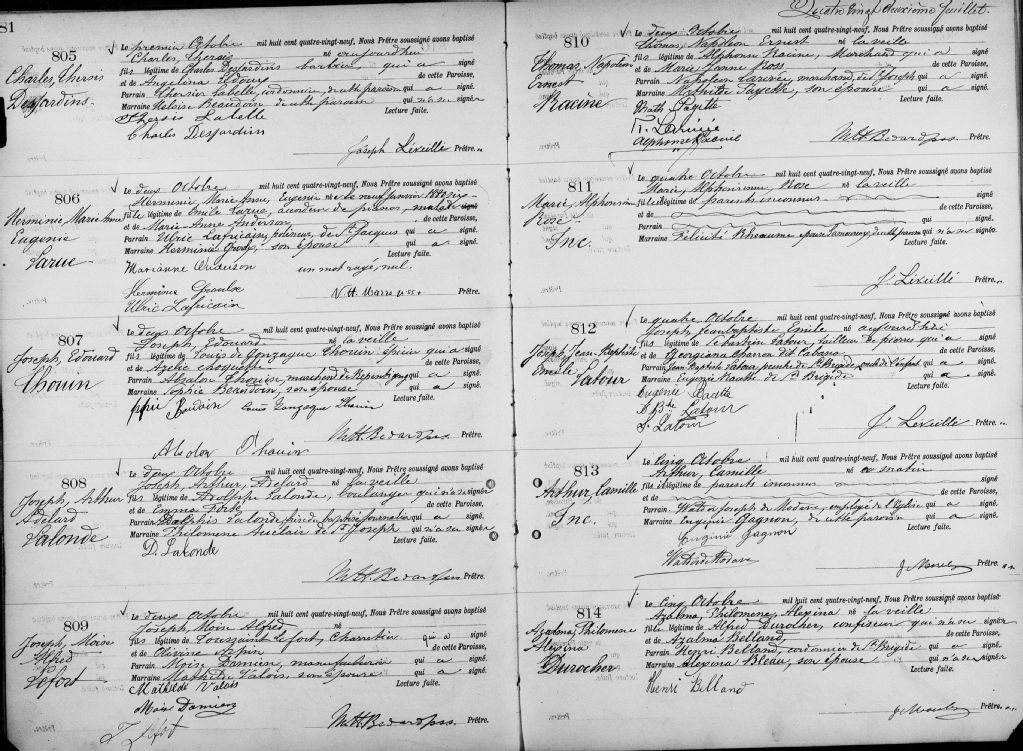 81
805
Charles, Thersis
Desjardins.
Le premier Octobre mil huit cent quatre-vingt-neuf, Nous Prêtre soussigné avons baptisé
Charles, Thersis né aujourd'hui
fils légitime de Charles Desjardins barbier qui a signé
et de Angelina de cette Paroisse,
Parrain Thersis Labelle, cordonnier, de cette paroisse qui a signé.
Marraine Heloise Beaudoin de cette paroisse qui n'a su signer
Lecture faite.
Thersis Labelle
Charles Desjardins
Joseph Léveillé Prêtre.
806
Herminie, Marie Anne
Eugenie
Larue
Le deux Octobre mil huit cent quatre-vingt-neuf, Nous Prêtre soussigné avons baptisé
Herminie Marie Anne, Eugenie née le neuf Janvier
fille légitime de Emile Larue, accordeur de pianos,
et de Marie Anne Anderson de cette Paroisse,
Parrain Ulric Lafricain, de St Jacques qui a signé.
Marraine Herminie son épouse qui a signé.
Lecture faite.
un mot rayé, nul.
Herminie
Ulric Lafricain
Prêtre.
807
Joseph, Edouard
Chouin
Le deux Octobre mil huit cent quatre-vingt-neuf, Nous Prêtre soussigné avons baptisé
Joseph, Edouard né la veille
fils légitime de Louis de Gonzague Chouin épicier qui a signé
et de Azélie Choquette de cette Paroisse,
Parrain Absalon Chouin, marchand de Repentigny qui a signé.
Marraine Sophie Beaudoin, son épouse qui a signé.
Lecture faite.
Beaudoin Louis Gonzague Chouin
M.H. Bedard pss. Prêtre.
808
Joseph, Arthur
Adelard
Lalonde
Le deux Octobre mil huit cent quatre-vingt-neuf, Nous Prêtre soussigné avons baptisé
Joseph, Arthur, Adelard né la veille
fils légitime de Adolphe Lalonde, boulanger qui n'a su signer
et de Emma de cette Paroisse,
Parrain Dalphis Lalonde frère du baptisé journalier qui a signé.
Marraine Philomene Auclair de St Joseph qui n'a su signer
Lecture faite.
D. Lalonde
M.H. Bedard pss Prêtre.
809
Joseph, Moise
Alfred
Lefort
Le deux Octobre mil huit cent quatre-vingt-neuf, Nous Prêtre soussigné avons baptisé
Joseph Moise Alfred né
fils légitime de Toussaint Lefort, Charretier qui a signé
et de Olivine de cette Paroisse,
Parrain Moise Damien, manufacturier qui a signé.
Marraine Mathilde Valois, son épouse qui a signé.
Lecture faite.
Mathilde Valois
Moise Damien
T. Lefort
M.H. Bedard pss. Prêtre.
Quatre vingt deuxième feuillet.
810
Thomas, Napoleon
Ernest
Racine
Le deux Octobre mil huit cent quatre-vingt-neuf, Nous Prêtre soussigné avons baptisé
Thomas, Napoleon Ernest né la veille
fils légitime de Alphonse Racine, Marchand qui a signé
et de Marie Ross de cette Paroisse,
Parrain Napoleon Larivée, marchand, de St Joseph qui a signé.
Marraine Mathilde Payette, son épouse qui a signé.
Lecture faite.
Math Payette
N. Larivée
Alphonse Racine
M.H. Bedard pss. Prêtre.
811
Marie, Alphonsine
Rose
Inc.
Le quatre Octobre mil huit cent quatre-vingt-neuf, Nous Prêtre soussigné avons baptisé
Marie, Alphonsine Rose né la veille
fille illégitime de parents inconnus
et de de cette Paroisse,
Parrain qui signé.
Marraine Félicité Rheaume épouse de cette paroisse qui n'a su signer
Lecture faite.
J. Léveillé Prêtre.
812
Joseph Jean-Baptiste
Emile
Latour
Le quatre Octobre mil huit cent quatre-vingt-neuf, Nous Prêtre soussigné avons baptisé
Joseph, Jean Baptiste Emile né aujourd'hui
fils légitime de Sebastien Latour, tailleur de pierre qui a signé
et de Georgiana Charon dit Cabana de cette Paroisse,
Parrain Jean Baptiste Latour peintre de Ste Brigide, oncle de l'enfant qui a signé.
Marraine Eugenie de Ste Brigide qui a signé.
Lecture faite.
Eugenie
J. Bte Latour
S. Latour
J. Léveillé Prêtre.
813
Arthur, Camille
Inc.
Le cinq Octobre mil huit cent quatre-vingt-neuf, Nous Prêtre soussigné avons baptisé
Arthur, Camille né ce matin
fils illégitime de parents inconnus signé
et de de cette Paroisse,
Parrain Joseph de Modave, employé de l'Eglise qui a signé.
Marraine Eugenie Gagnon, de cette paroisse qui a signé.
Lecture faite.
Eugenie Gagnon
Prêtre.
814
Azalma, Philomene
Alexina
Durocher
Le cinq Octobre mil huit cent quatre-vingt-neuf, Nous Prêtre soussigné avons baptisé
Azalma, Philomene, Alexina né la veille
fille légitime de Alfred Durocher, confiseur qui n'a su signer
et de Azalma Belland, de cette Paroisse,
Parrain Henri Belland, cordonnier de Ste Brigide qui a signé.
Marraine Alexina Bleau, son épouse qui n'a su signer
Lecture faite.
Henri Belland
Prêtre.